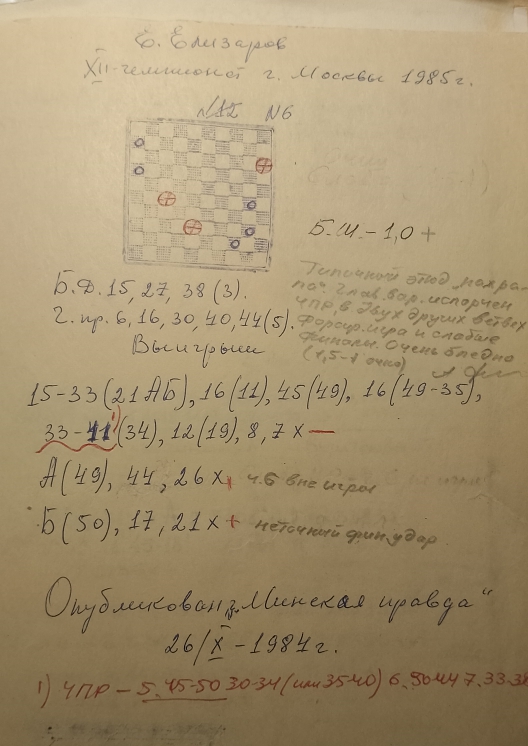 Е. Елизаров
XII-чемпионат г. Москвы 1985г.
№12 №6
Б.Ш. – 1,0 +
Типичный этюд
глав. вар. испорчен
ЧПР, в двух других ветвях
форсир. игра и слабые
финалы. Очень бледно
(1,5-1 очко)
Б.Д. 15, 27, 38 (3).
Ч. пр. 6, 16, 30, 40, 44 (5).
Выигрыш
15-33 (21АБ), 16 (11), 45 (49), 16 (49-35),
33-11 1) (34), 12 (19), 8, 7 х —
А (49), 44, 26 х + ч. 6 вне игры
Б (50), 17, 21 х + неточный фин. удар.
Опубликован „Минская правда“
26/X – 1984г.
1) ЧПР – 5. 45-50 30-34 (или 35-40) 6. 50-44 7. 33-38